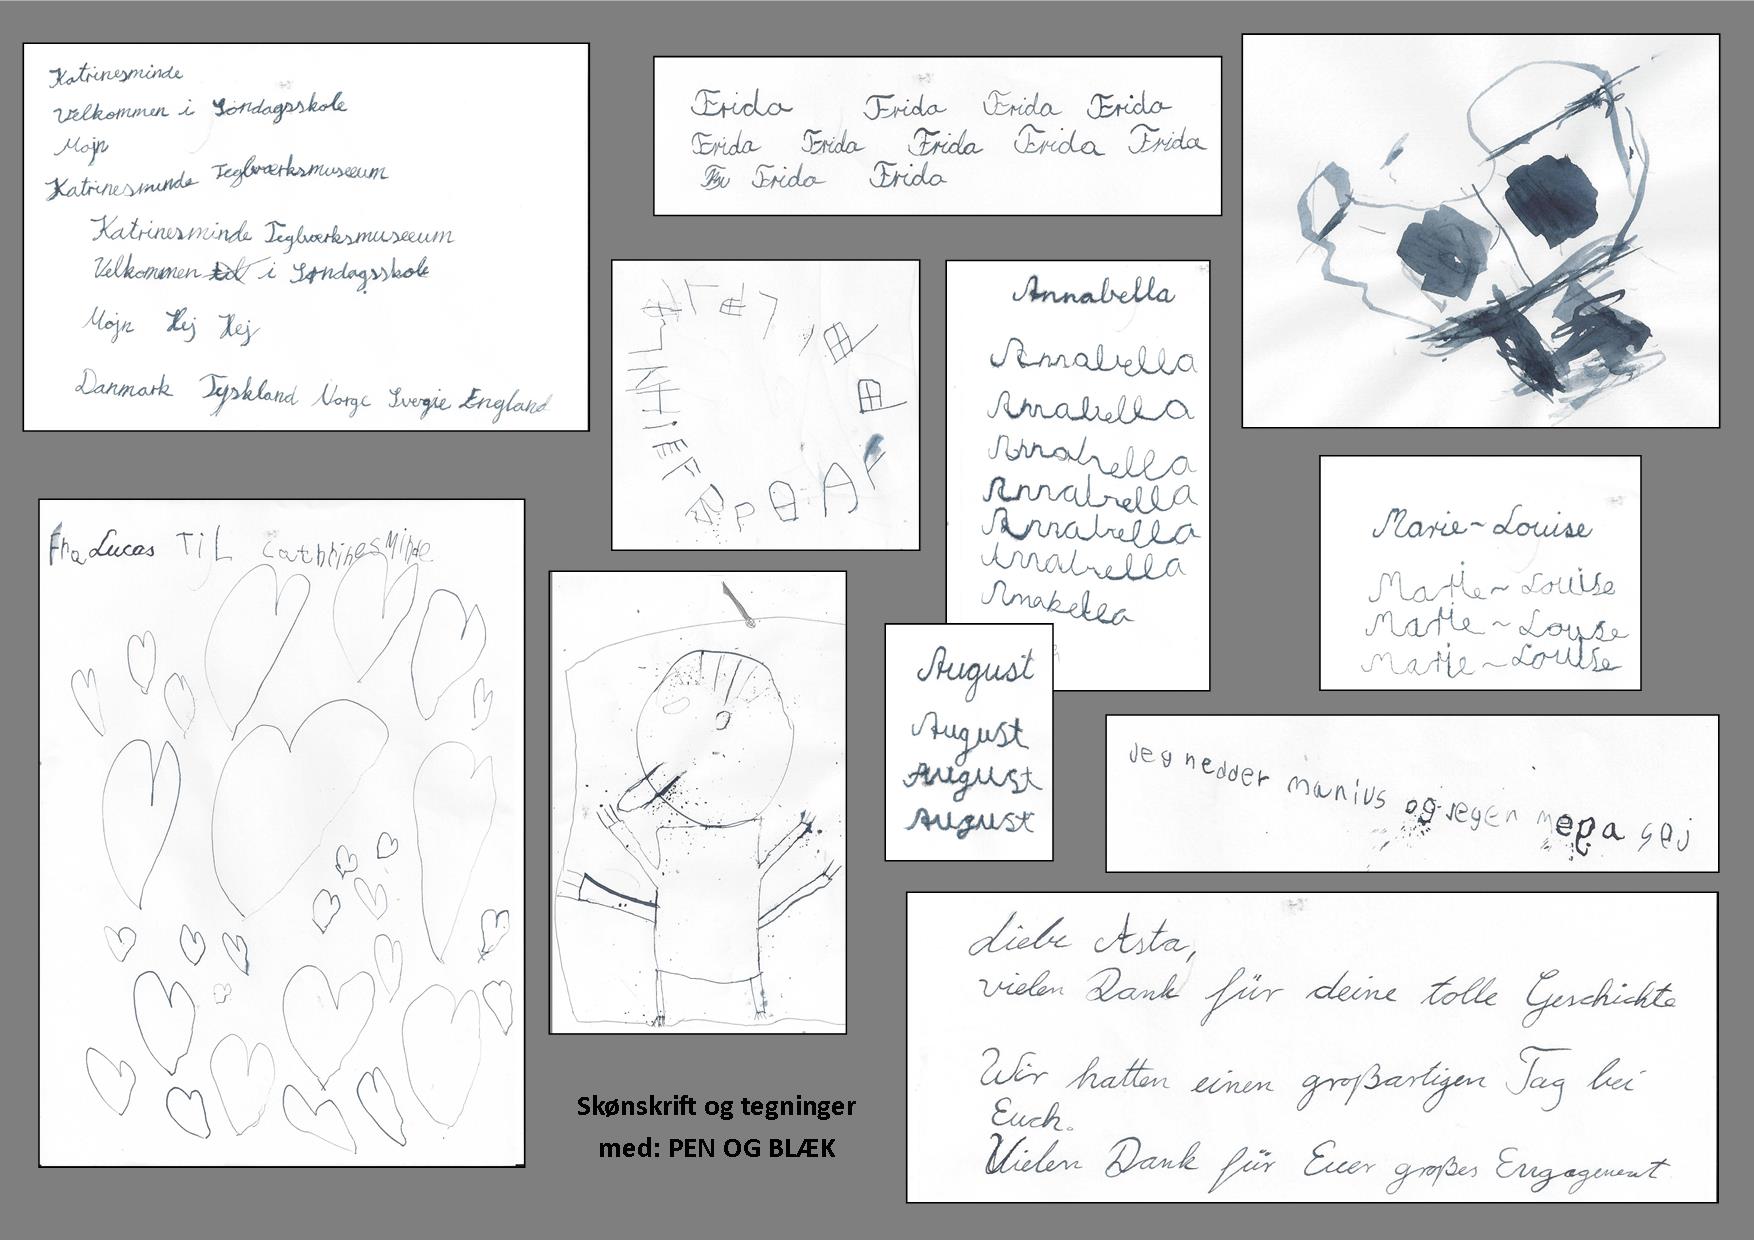 Katrinesminde
Velkommen i Søndagsskole
Mojn
Katrinesminde Teglværksmuseeum
Katrinesminde Teglværksmuseeum
Velkommen til i Søndagsskole
Mojn Hej Hej
Danmark Tyskland Norge Svergie England
Frida Frida Frida Frida
Frida Frida Frida Frida Frida
Fri Frida Frida
Annabella
Annabella
Annabella
Annabella
Annabella
Annabella
Annabella
Annabella
Marie~Louise
Marie~Louise
Marie~Louise
Marie~Louise
Fra Lucas TiL
August
August
August
August
Jeg hedder
og
Liebe Asta,
vielen Dank für deine tolle Geschichte
Wir hatten einen großartigen Tag bei
Euch.
Vielen Dank für Euer großes Engagement
Skønskrift og tegninger
med: PEN OG BLÆK